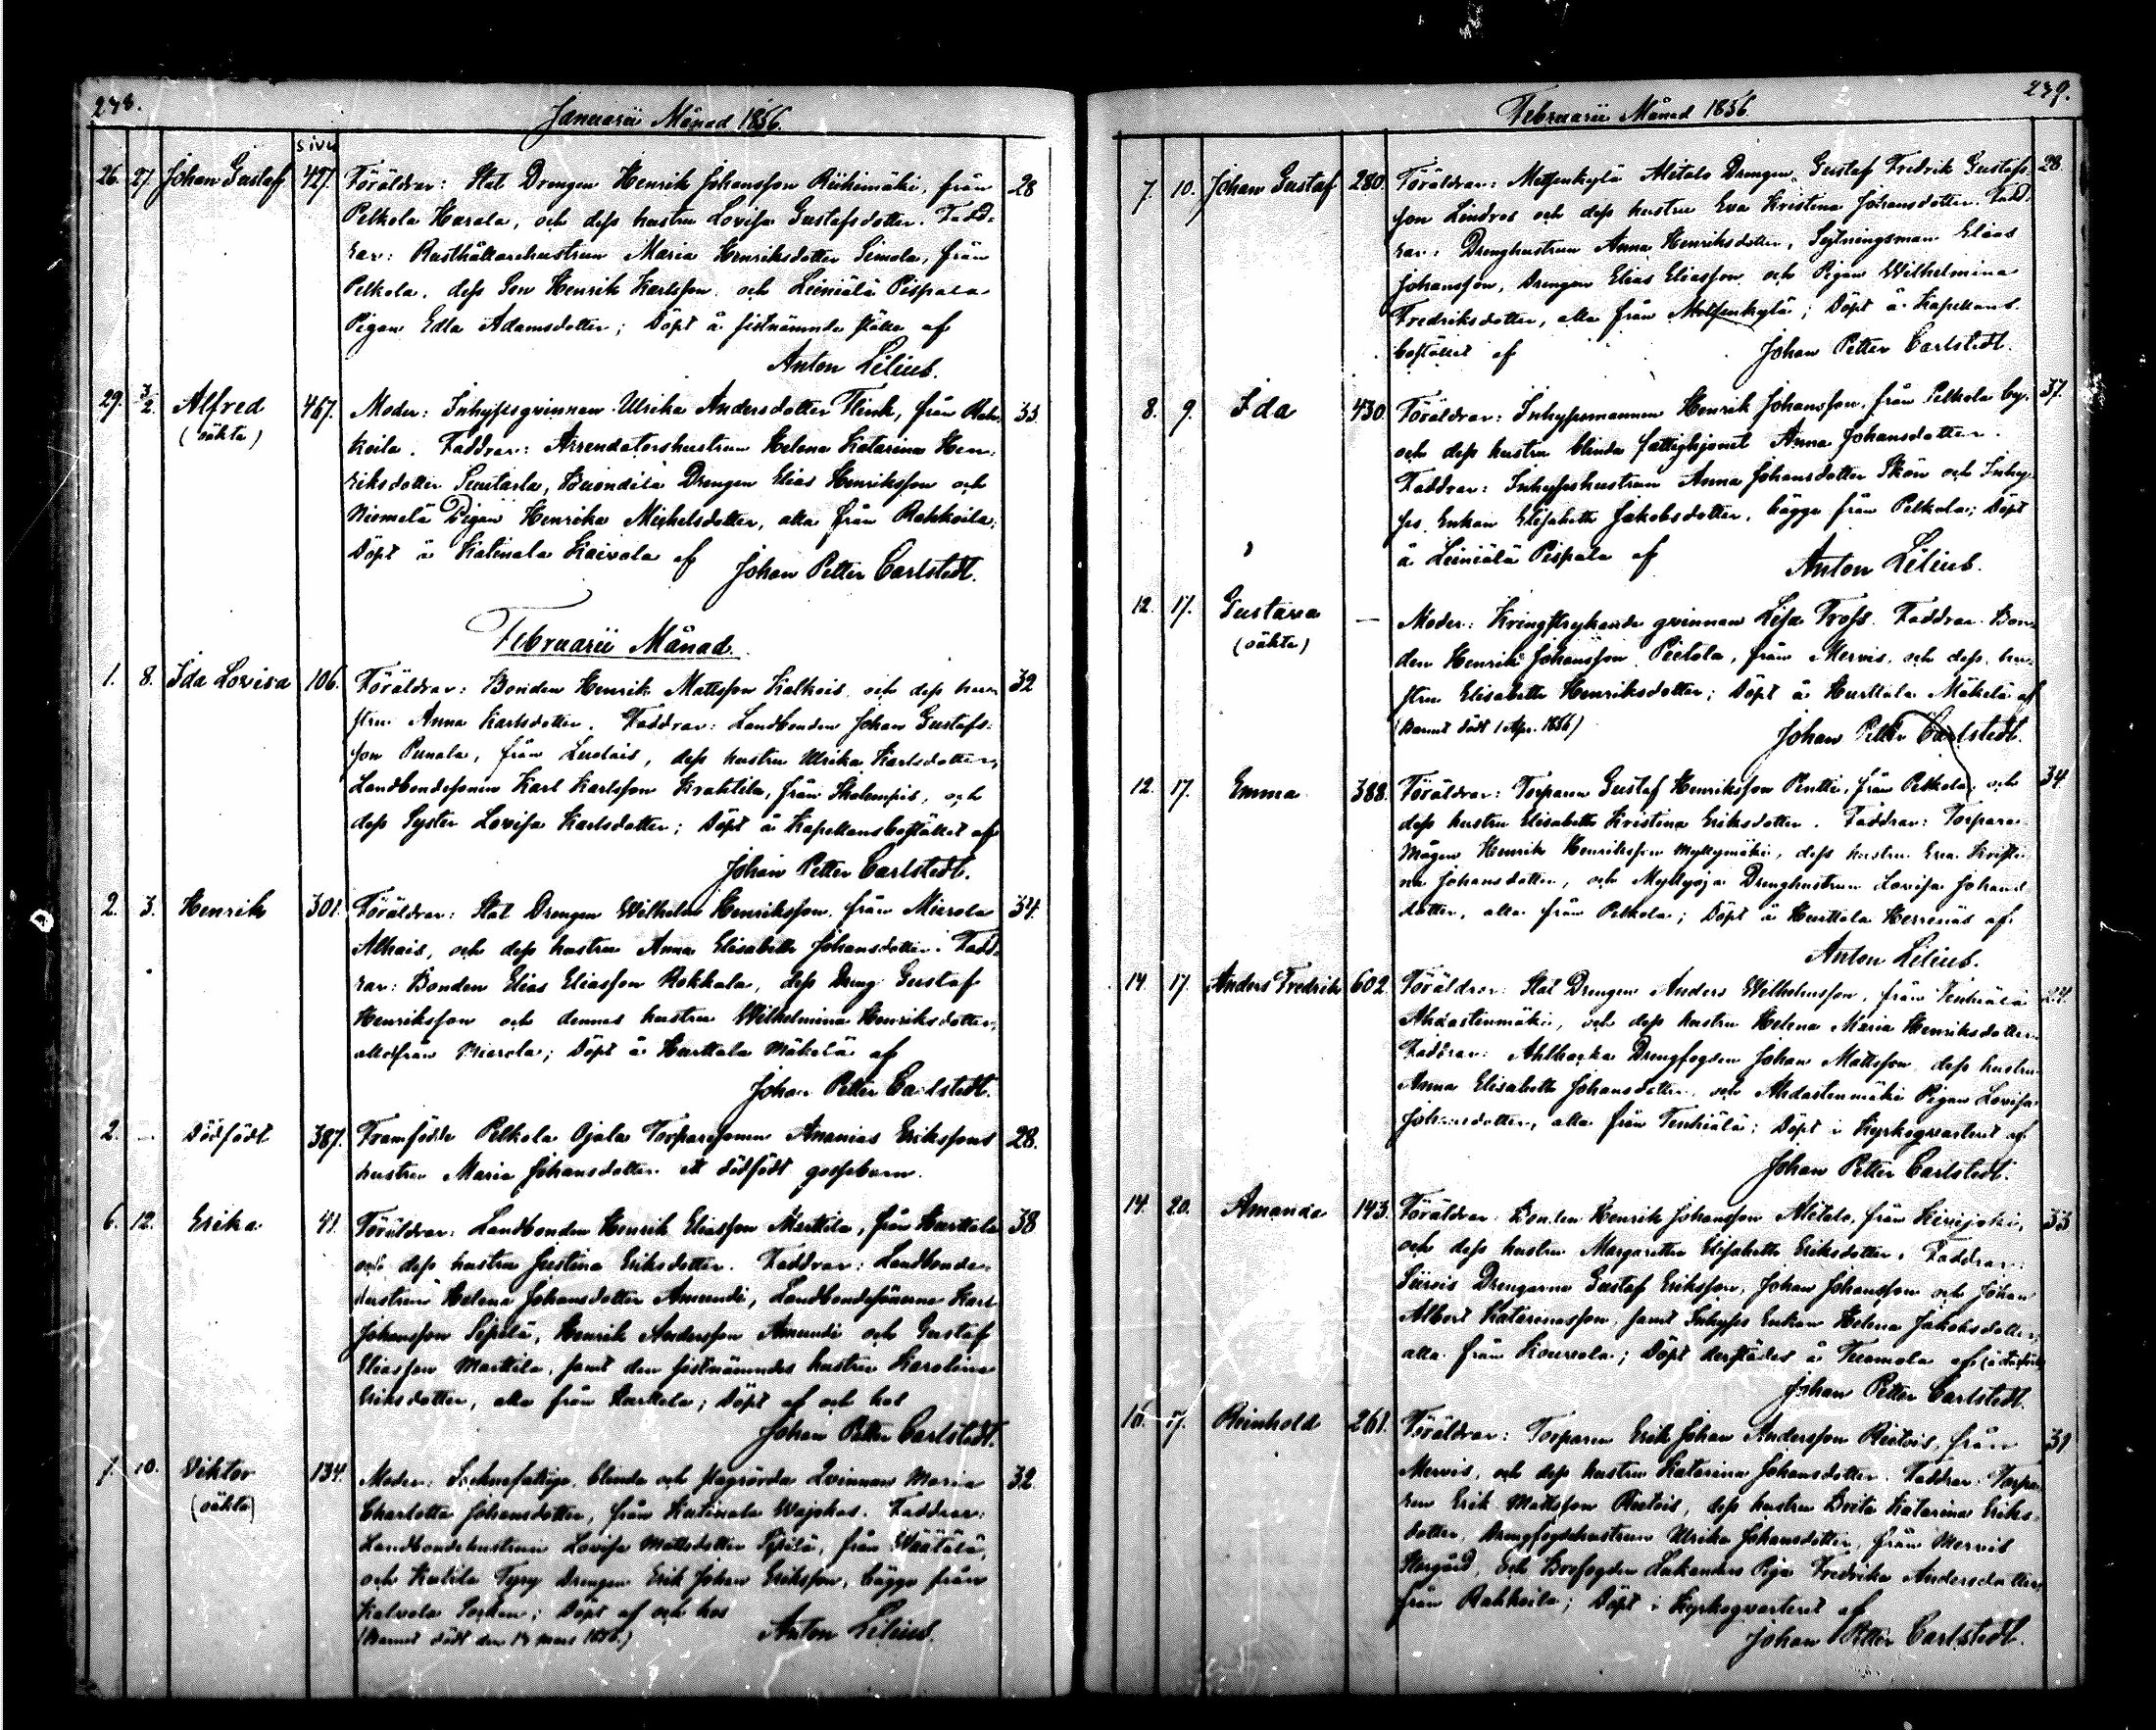 278.
Januarii Månad 1856.
sivu
26. 27. Johan Gustaf 427. Föräldrar: Stat Drengen Henrik Johansson Riihimäki, från 28
Pelkola Harala, och dess hustru Lovisa Gustafsdotter. Fadd-
rar: Rusthållarehustrun Maria Henriksdotter Simola, från
Pelkola, dess Son Henrik Karlsson och Leiniälä Pispala
Pigan Edla Adamsdotter; Döpt å sistnämnde ställe af
Anton Lilius.
29. 3/2. Alfred 467. Moder: Inhysesqvinnan Ulrika Andersdotter Flink, från Rah- 33.
(oäkta) koila. Faddrar: Arrendatorshustrun Helena Katarina Hen-
riksdotter Drengen Elias Henriksson och
Niemelä Pigan Henrika Michelsdotter, alla från Rahkoila;
Döpt å Katinala Kaivola af Johan Petter Carlstedt.
Februarii Månad.
1. 8. Ida Lovisa 106. Föräldrar: Bonden Henrik Mattsson Kalkois och dess hu-
32
stru Anna Karlsdotter. Faddrar: Landbonden Johan Gustafs-
son Punala, från Luolais, dess hustru Ulrika Karlsdotter,
Landbondesonen Karl Karlsson Krahtila, från och
dess Syster Lovisa Karlsdotter; Döpt å Kapellansbostället af
Johan Petter Carlstedt.
2. 3. Henrik 301. Föräldrar: Stat Drengen Wilhelm Henriksson från Mierola 34.
Alhais, och dess hustru Anna Elisabeth Johansdotter. Fadd-
rar: Bonden Elias Eliasson Rokkala, dess Dreng Gustaf
Henriksson och dennes hustru Wilhelmina Henriksdotter,
alla från Mierola; Döpt å Hurttala Mäkelä af
Johan Petter Carlstedt.
2. — Dödfödt 387. Framfödde Pelkola Ojala Torparesonen Ananias Erikssons 28.
hustru Maria Johansdotter ett dödfödt gossebarn.
6. 12. Erika 41. Föräldrar: Landbonden Henrik Eliasson Marttila, från Hurttala 38
och dess hustru Justina Eriksdotter. Faddrar: Landbonde-
hustrun Helena Johansdotter Amundi, Landbondesönerna Karl
Johansson Sipilä, Henrik Andersson Amundi och Gustaf
Eliasson Marttila, samt den sistnämndes hustru Karolina
Eriksdotter, alla från Hurttala; Döpt af och hos
Johan Petter Carlstedt.
7. 10. Viktor 134. Moder: Socknefattiga, blinda och Qvinnan Maria 32.
(oäkta) Charlotta Johansdotter, från Katinala Wajokas. Faddrar:
Landbondehustrun Lovisa Mattsdotter från Wäälälä,
och Katila Tyry Drengen Erik Johan Eriksson, bägge från
Kalvola Socken; Döpt af och hos
(Barnet dödt den 13 Mars 1856.) Anton Lilius.
279.
Februarii Månad 1856.
7. 10. Johan Gustaf 280. Föräldrar: Metsenkylä Alitalo Drengen Gustaf Fredrik Gustafs- 28.
son Lindros och dess hustru Eva Kristina Johansdotter. Fadd-
rar: Drenghustrun Anna Henriksdotter, Sejtningsman Elias
Johansson, Drengen Elias Eliasson och Pigan Wilhelmina
Fredriksdotter, alla från Metsenkylä; Döpt å Kapellans-
bostället af Johan Petter Carlstedt.
8. 9. Ida 430. Föräldrar: Inhysesmannen Henrik Johansson, från Pelkola by, 37.
och dess hustru blinda fattighjonet Anna Johansdotter.
Faddrar: Inhyseshustrun Anna Johansdotter Skön och Inhy-
ses Enkan Elisabeth Jakobsdotter, bägge från Pelkola; Döpt
å Leiniälä Pispala af Anton Lilius.
12. 17. Gustava — Moder: Kringstrykande qvinnan Lisa Fross. Faddrar: Bon-
(oäkta) den Henrik Johansson Pietola, från Mervis och dess hu-
stru Elisabeth Henriksdotter; Döpt å Hurttala Mäkelä af
(Barnet dödt 1 Apr. 1856) Johan Petter Carlstedt.
12. 17. Emma 388. Föräldrar: Torparen Gustaf Henriksson Pentti, från Pelkola och 34.
dess hustru Elisabeth Kristina Eriksdotter. Faddrar: Torpare
Mågen Henrik Henriksson Myllymäki, dess hustru Eva Kristi-
na Johansdotter, och Myllyoja Drenghustrun Lovisa Johans-
dotter, alla från Pelkola; Döpt å Hurttala Herrenäs af
Anton Lilius.
14. 17. Anders Fredrik 602. Föräldrar: Stat Drengen Anders Wilhelmsson, från Tenhiälä 24.
Ahdastenmäki, och dess hustru Helena Maria Henriksdotter.
Faddrar: Ahlbacka Drengfogden Johan Mattsson, dess hustru
Anna Elisabeth Johansdotter och Ahdastenmäki Pigan Lovisa
Johansdotter, alla från Tenhiälä; Döpt i Kyrkoqvarteret af
Johan Petter Carlstedt.
14. 20. Amanda 143. Föräldrar: Bonden Henrik Johansson Alitalo, från Kirrijoki, 33
och dess hustru Margaretha Elisabeth Eriksdotter. Faddrar:
Siirois Drengarna Gustaf Eriksson, Johan Johansson och Johan
Albert Katarinasson, samt Inhyses Enkan Helena Jakobsdotter,
alla från Kouvola; Döpt derstädes å Tuomola af
Johan Petter Carlstedt.
16. 17. Reinhold 261. Föräldrar: Torparen Erik Johan Andersson Rutois, från 31
Mervis, och dess hustru Katarina Johansdotter. Faddrar: Torpa-
ren Erik Mattsson Rutois, dess hustru Brita Katarina Eriks-
dotter, Drengfogdehustrun Ulrika Johansdotter, från Mervis
Storgård, och Bofogden Lukanders Piga Fredrika Andersdotter,
från Rahkoila; Döpt i Kyrkoqvarteret af
Johan Petter Carlstedt.